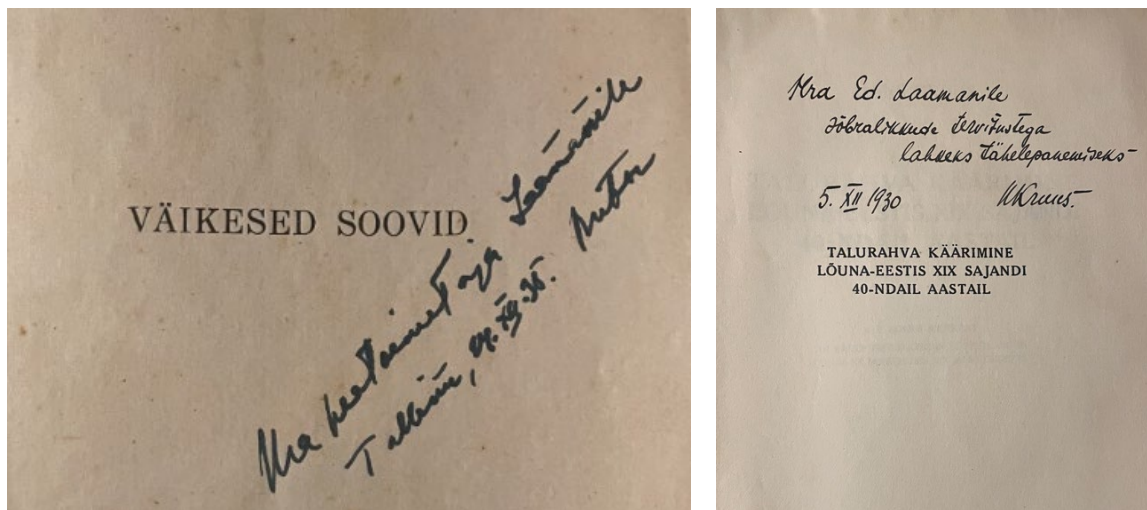 VÄIKESED SOOVID
Hra peatoimetaja Laamanile
Tallinn, XII.35. Autor
Hra Ed. Laamanile
sõbralikkude tervitustega
lahkeks tähelepanemiseks
5. XII 1930 HKruus.
TALURAHVA KÄÄRIMINE
LÕUNA-EESTIS XIX SAJANDI
40-NDAIL AASTAIL